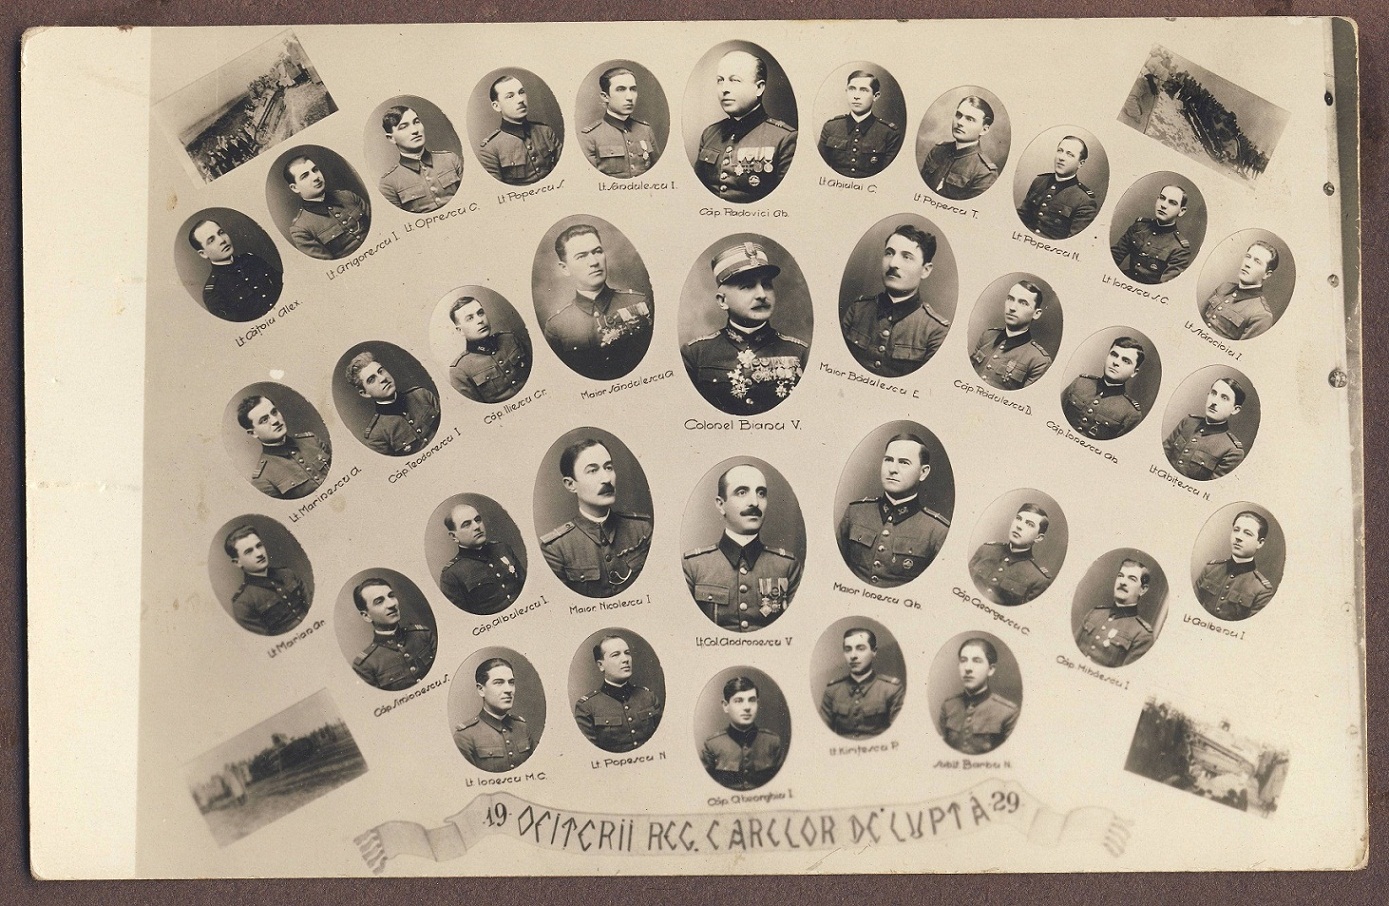 Lt. Cățoiu Alex.
Lt. Grigorescu I.
Lt. Oprescu C.
Lt. Popescu S.
Lt. Săndulescu I.
Căp. Radovici Gh.
Lt. Ghiulai C.
Lt. Popescu T.
Lt. Popescu N.
Lt. Ionescu S.C.
Lt. Stăncioiu I.
Lt. Marinescu A.
Căp. Teodorescu I.
Căp. Iliescu Gr.
Maior Săndulescu A.
Colonel Bianu V.
Maior Bădulescu E.
Căp. Rădulescu D.
Căp. Ionescu Gh.
Lt. Ghițescu N.
Lt. Marian Gr.
Căp. Simionescu S.
Căp. Albulescu I.
Maior Nicolescu I
Lt. Col. Andronescu V.
Maior Ionescu Gh.
Căp. Georgescu C.
Căp. Mihăescu I
Lt. Galbenu I.
Lt. Ionescu M.C.
Lt. Popescu N
Căp. Gheorghiu I.
Lt. Kirițescu P.
Sublt. Barbu N.
19 OFIȚERII REG. CARELOR DE LUPTĂ 29